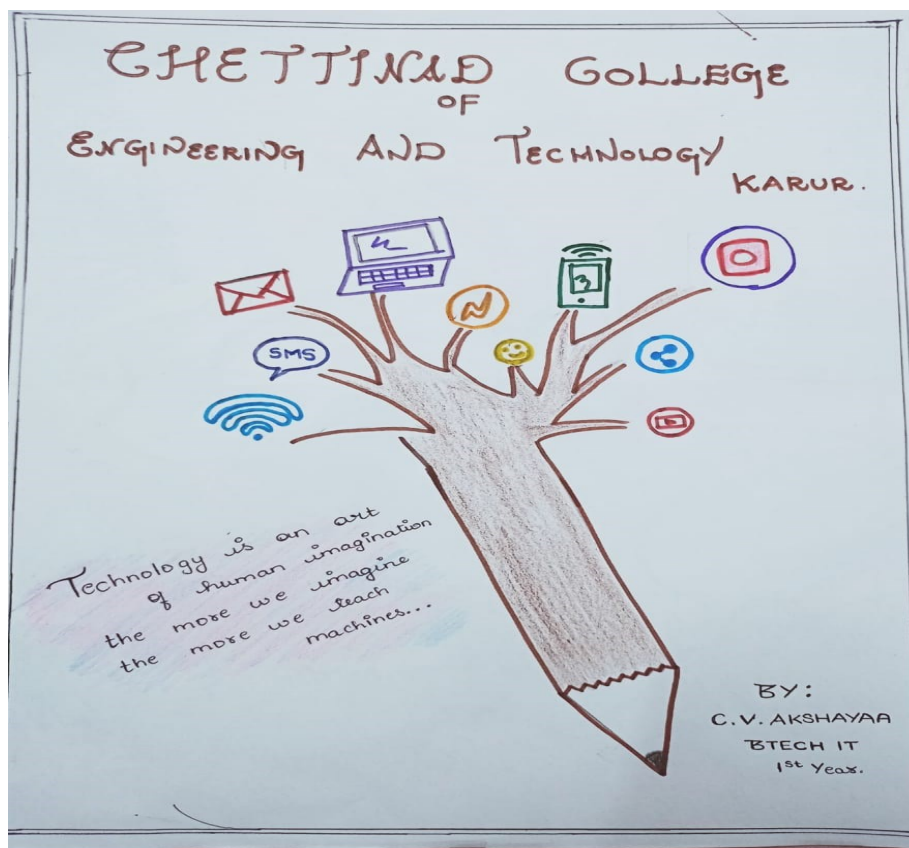 CHETTINAD COLLEGE
OF
ENGINEERING AND TECHNOLOGY
KARUR.
SMS
Technology is an art
of human imagination
the more we imagine
the more we teach
machines...
BY:
C.V. AKSHAYAA
BTECH IT
1st Year.